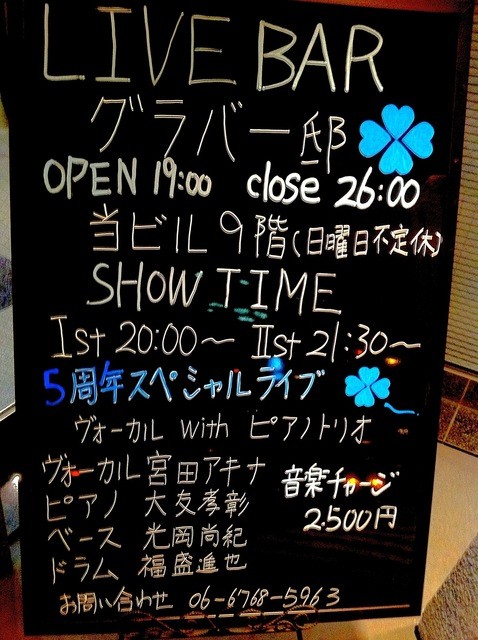 LIVE BAR
グラバー邸
OPEN 19:00 close 26:00
当ビル9階(日曜日不定休)
SHOW TIME
Ist 20:00〜 IIst 21:30〜
5周年スペシャルライブ
ヴォーカル with ピアノトリオ
ヴォーカル 宮田アキナ
ピアノ 大友孝彰
ベース 光岡尚紀
ドラム 福盛進也
音楽チャージ
2.500円
お問い合わせ 06-6768-5963